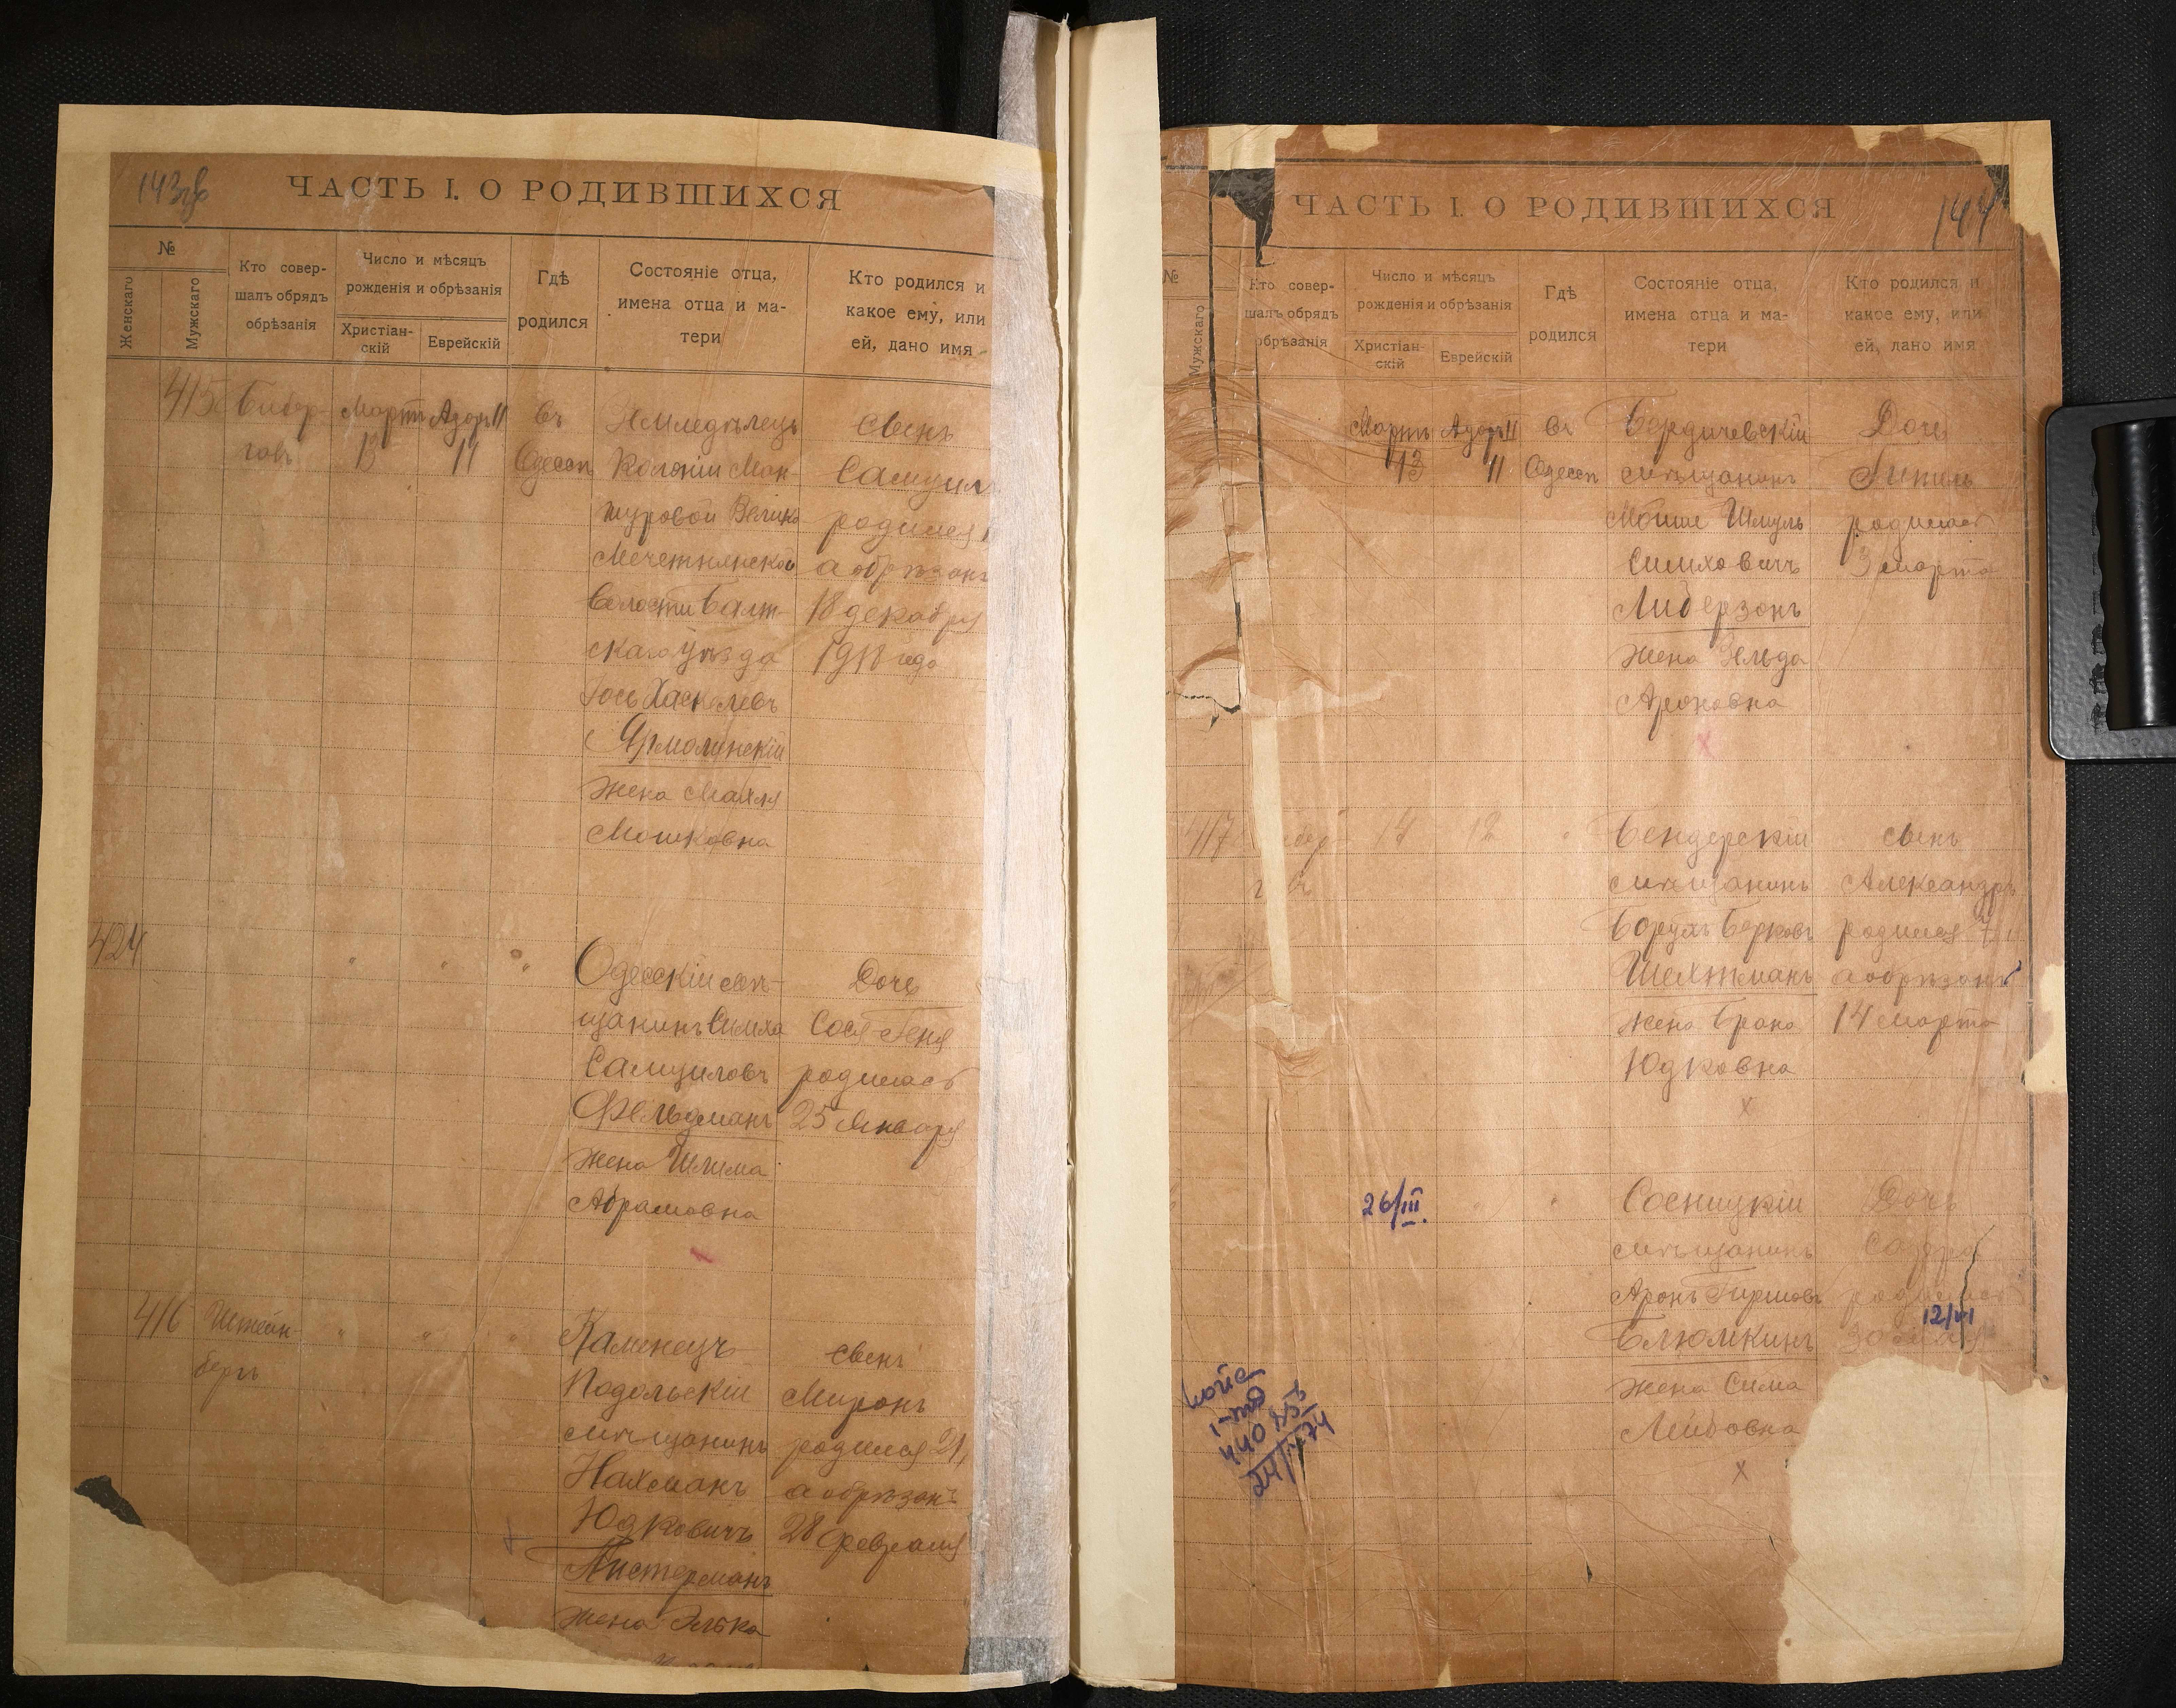 143об
ЧАСТЬ I. О РОДИВШИХСЯ
№
Женскаго
Мужскаго
Кто совер-
шалъ обрядъ
обрѣзанія
Число и мѣсяцъ
рожденія и обрѣзанія
Христіан-
скій
Еврейскій
Гдѣ
родился
Состояніе отца,
имена отца и ма-
тери
Кто родился и
какое ему, или
ей, дано имя
415
Мартъ
13
Адаръ II
11
въ
Одессѣ
Землед
Колоніи Ман-
журовой Велико
Мечетнянской
Волости Балт-
скаго уѣзда
Іось Хаскелевъ
Ярмолинскій
жена Махля
Мошковна
сынъ
Самуилъ
родился
а обрѣзанъ
18 декабря
1918 года
424
"
"
"
Одесскій мѣ-
щанинъ Симха
Самуиловъ
Фельдманъ
жена Шлима
Абрамовна
Дочь
Сося Геня
родилась
25 Января
416
Штейн-
бергъ
"
"
"
Каменецъ
Подольскій
мѣщанинъ
Нахманъ
Юдковичъ
Листерманъ
жена Элька
сынъ
Миронъ
родился 21,
а обрѣзанъ
28 февраля
144
ЧАСТЬ I. О РОДИВШИХСЯ
№
Мужскаго
Кто совер-
шалъ обрядъ
обрѣзанія
Число и мѣсяцъ
рожденія и обрѣзанія
Христіан-
скій
Еврейскій
Гдѣ
родился
Состояніе отца,
имена отца и ма-
тери
Кто родился и
какое ему, или
ей, дано имя
Мартъ
13
Адаръ II
11
въ
Одессѣ
Бердичевскій
мѣщанинъ
Мойше Шмуль
Симховичъ
Либерзонъ
жена Зельда
Ароновна
Дочь
родилась
3 марта
417
14
12
"
Бендерскій
мѣщанинъ
Борухъ Берковъ
Шехтманъ
жена Брана
Юдковна
сынъ
Александръ
родился 7
а обрѣзанъ
14 марта
26/III.
"
"
Сосницкій
мѣщанинъ
Аронъ Гиршовъ
Блюмкинъ
жена Сима
Лейбовна
Дочь
родилась
12/VI